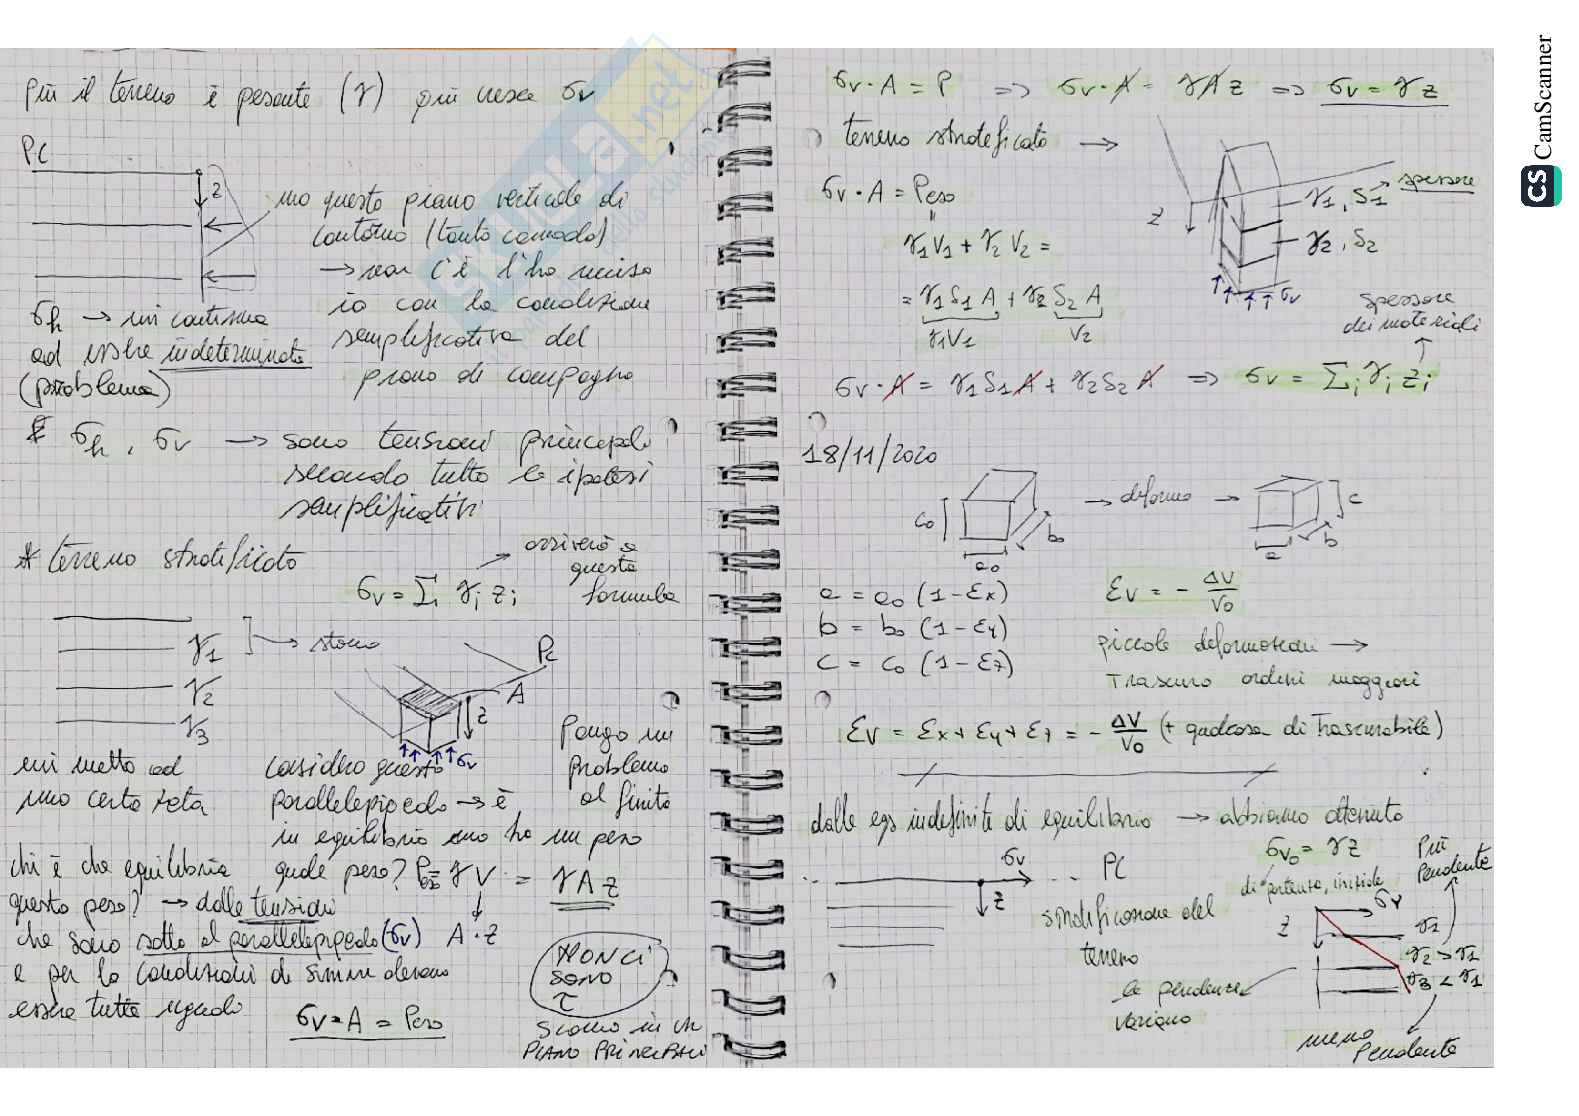 più il terreno è pesante (γ) più cresce σv
PC
z
ma questo piano verticale di
contorno (tanto comodo)
→ non c'è l'ho messo
io con la condizione
semplificativa del
piano di campagna
σh → mi continua
ad essere indeterminata
(problema)
σh, σv → sono tensioni principali
secondo tutte le ipotesi
semplificative
* terreno stratificato
σv = Σi γi zi
arriverò a
questa
formula
γ1
→ strato
γ2
γ3
PC
A
z
σv
mi metto ad
una certa zeta
considero questo
parallelepipedo → è
in equilibrio ma ha un peso
quale peso? Pes = γ V = γ A z
A · z
Pongo un
problema
al finito
chi è che equilibria
questo peso? → dalle tensioni
che sono sotto al parallelepipedo (σv)
e per le condizioni di simm devono
essere tutte uguali
σv · A = Peso
NON CI
SONO
τ
Siamo in un
PIANO PRINCIPALI
σv · A = P => σv · A = γ A z => σv = γ z
terreno stratificato →
σv · A = Peso
"
γ1 V1 + γ2 V2 =
= γ1 S1 A + γ2 S2 A
γ1V1
V2
z
γ1, S1 → spessore
γ2, S2
σv
spessore
dei materiali
σv · A = γ1 S1 A + γ2 S2 A => σv = Σi γi zi
18/11/2020
c0
a0
b0
→ deformo →
a
b
c
a = a0 (1 - εx)
b = b0 (1 - εy)
c = c0 (1 - εz)
εv = - ΔV / V0
piccole deformazioni →
Trascuro ordini maggiori
εv = εx + εy + εz = - ΔV / V0 (+ qualcosa di trascurabile)
dalle eqs indefinite di equilibrio → abbiamo ottenuto
σv0 = γ z
di partenza, iniziale
σv
PC
z
stratificazione del
terreno
le pendenze
variano
Più
pendente
z
σv
γ1
γ2 > γ1
γ3 < γ1
meno
pendente
CS CamScanner
SKUOLA.net